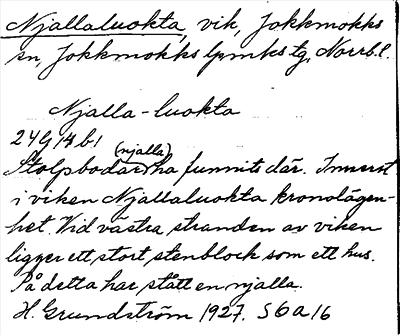 Njallaluokta, vik, Jokkmokks
sn, Jokkmokks lpmks tg, Norrb. l.
Njalla-luokta
24G 14 b 1
(njalla)
Stolpbodar ha funnits där. Innerst
i viken Njallaluokta kronolägen-
het. Vid västra stranden av viken
ligger ett stort stenblock som ett hus.
På detta har stått en njalla.
H. Grundström 1927. S 6 a 16